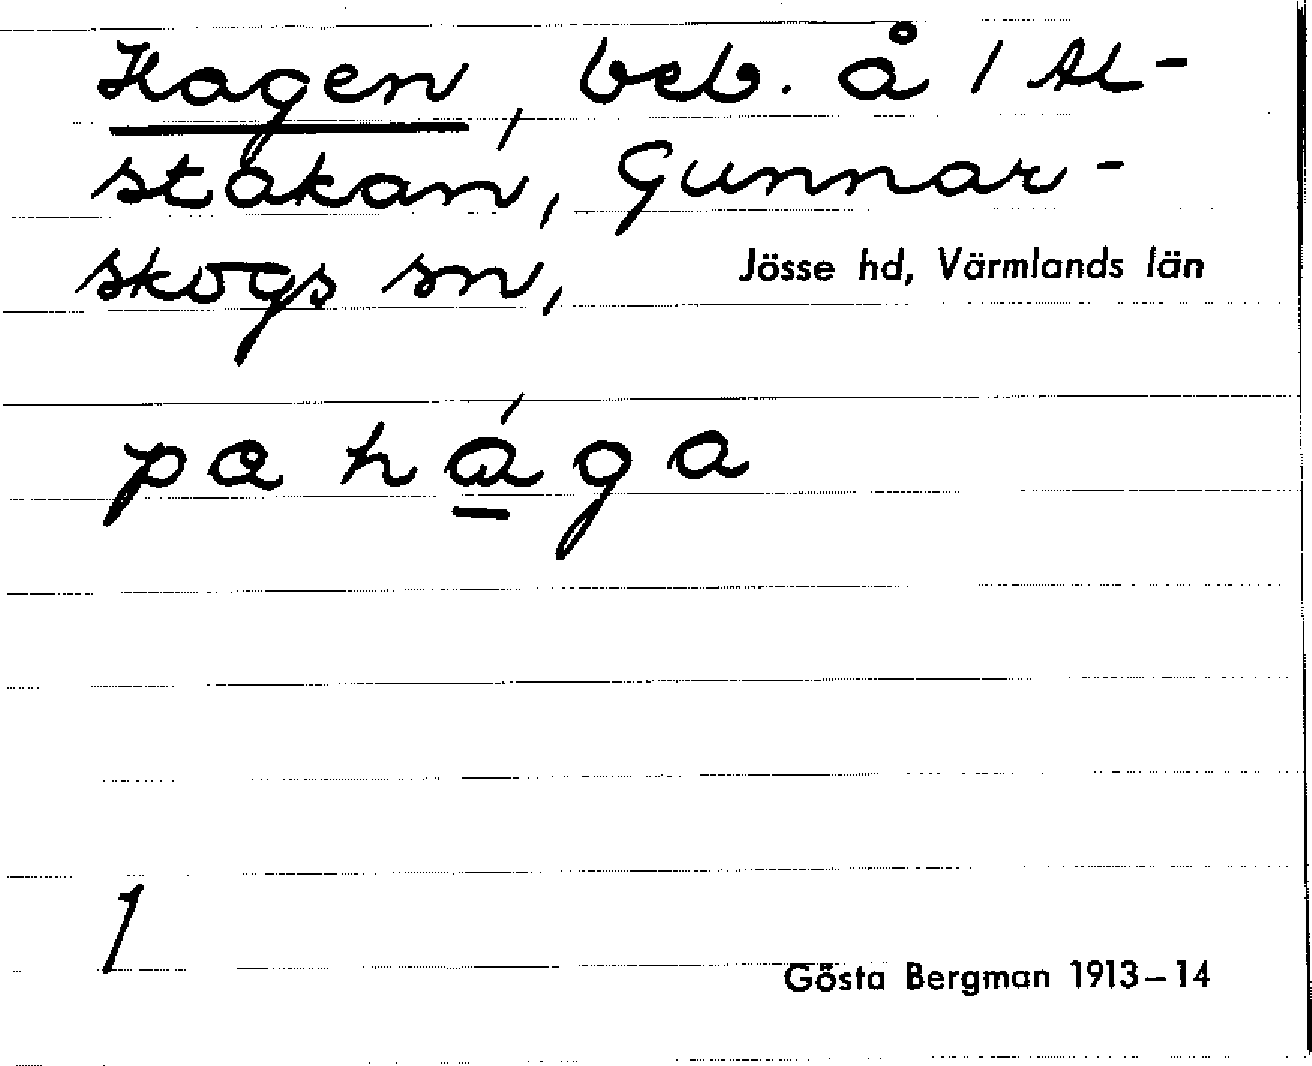 Hagen, beb. å 1 Al-
stakan, Gunnar-
skogs sn, Jösse hd, Värmlands län
pa hága
1
Gösta Bergman 1913–14